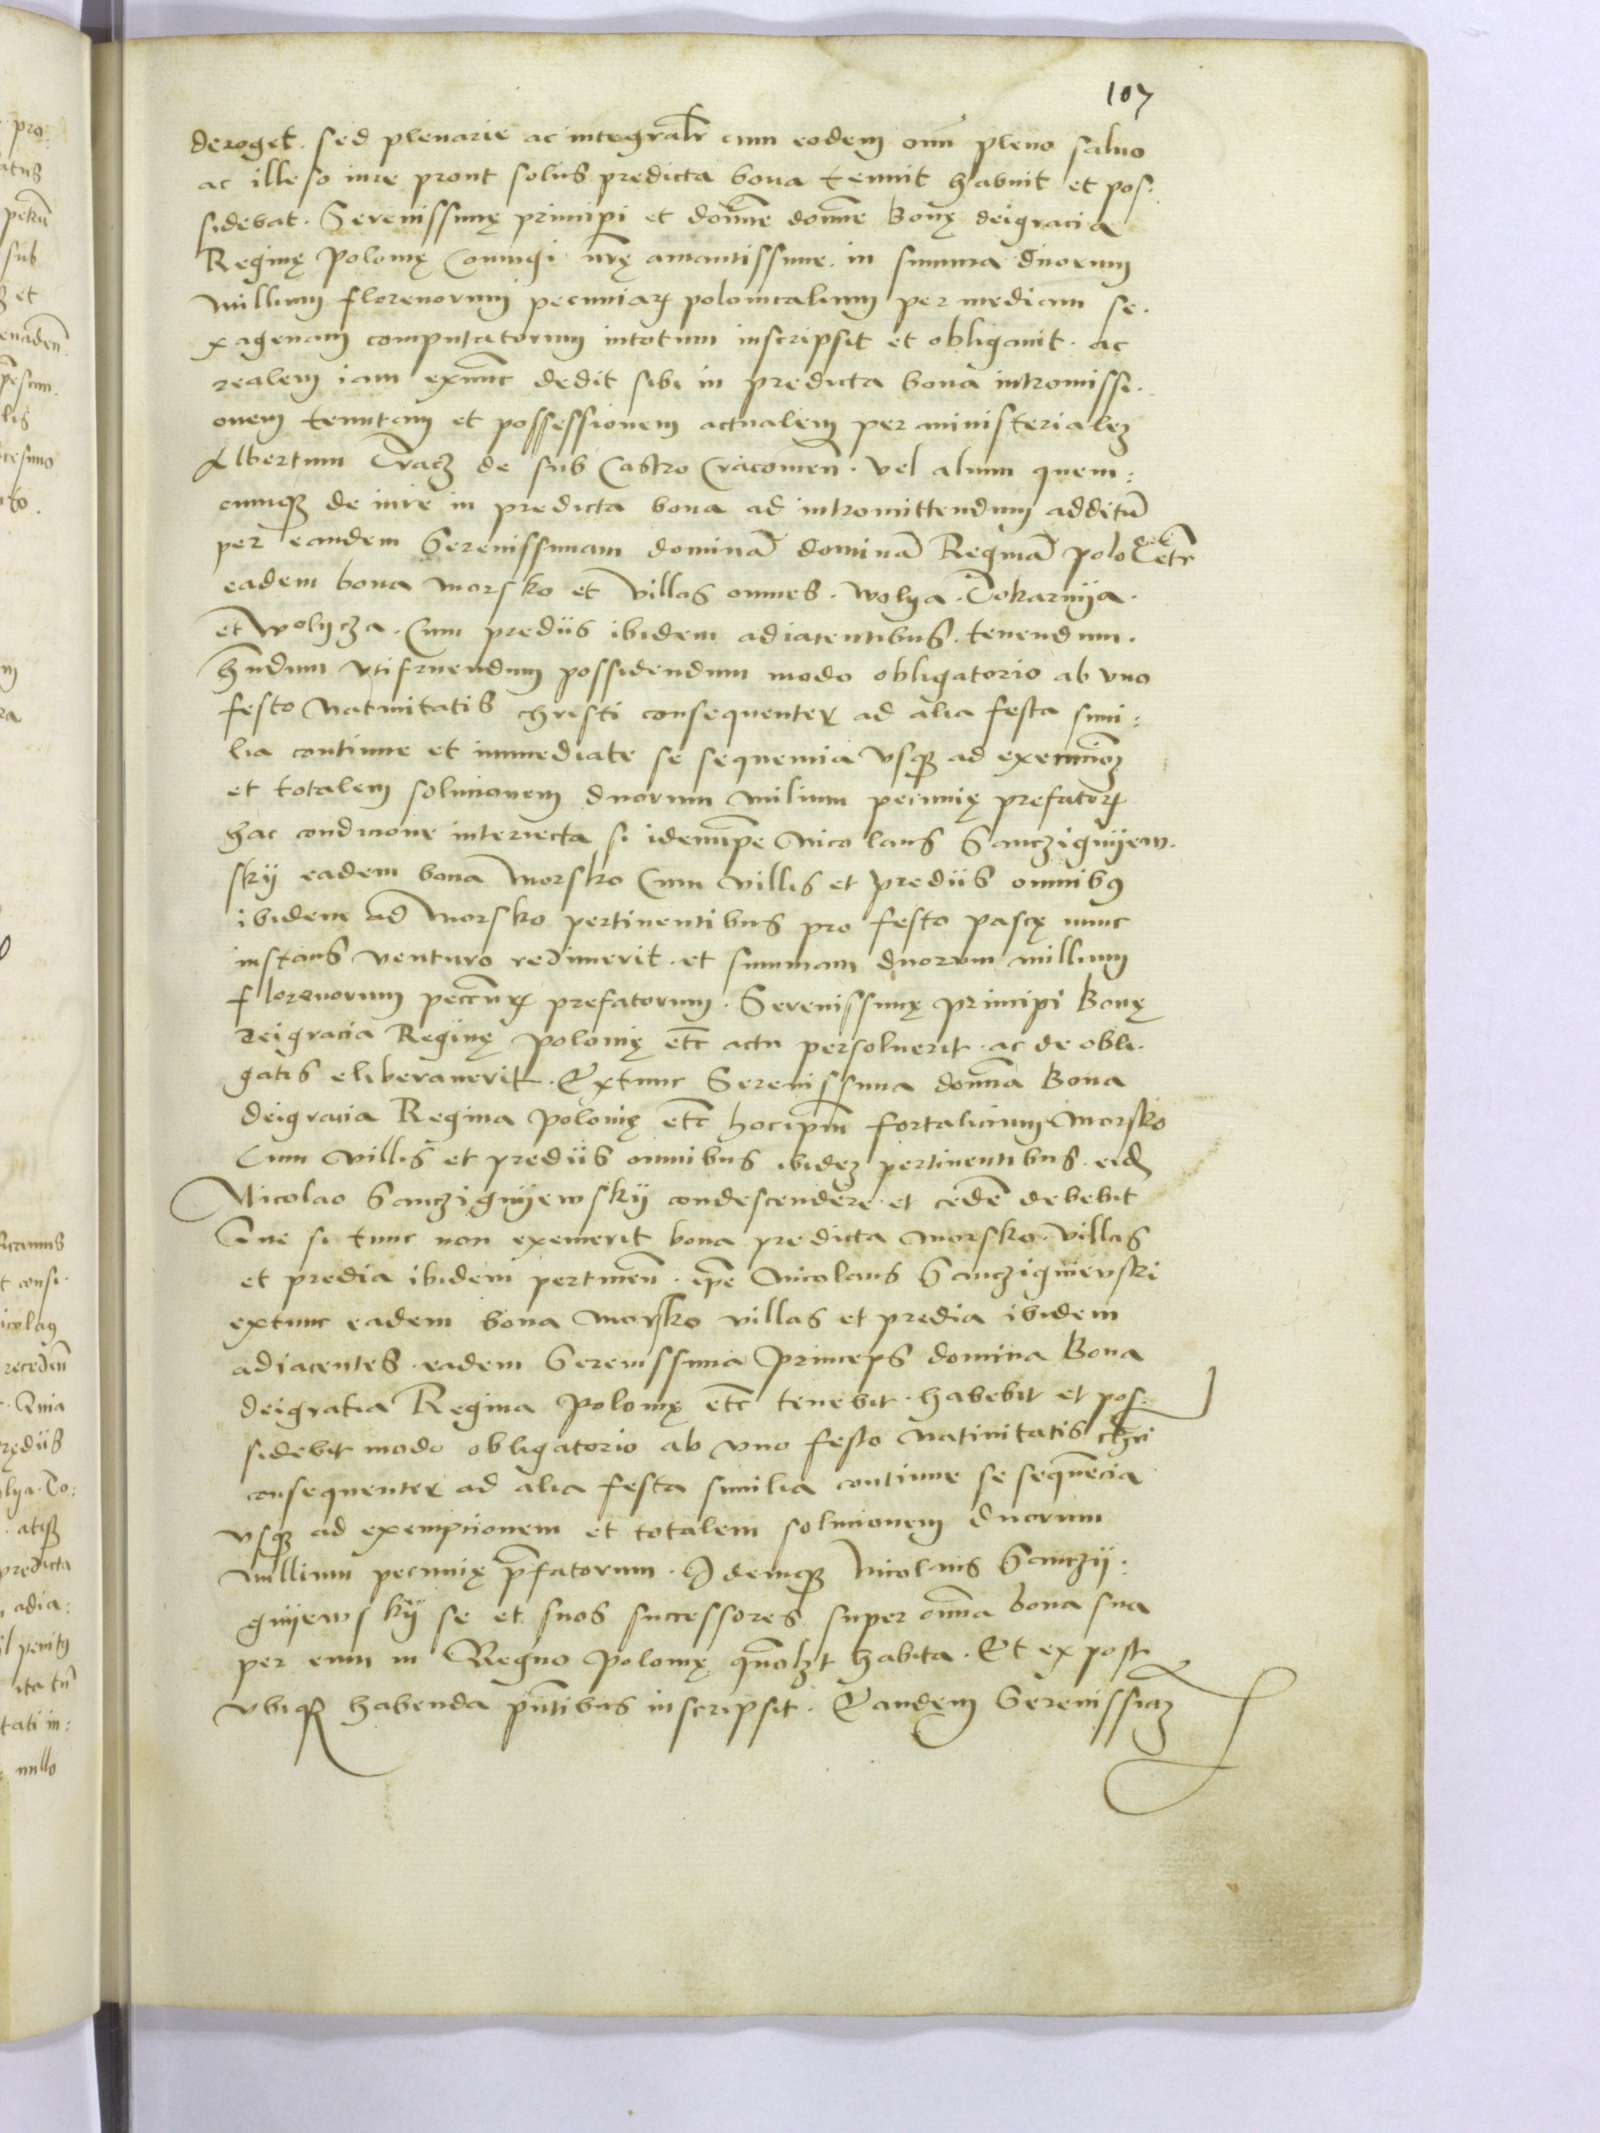 107
deroget. sed plenarie ac integralr cum eodem omi pleno saluo
ac illeso iure prout solus predicta bona tenuit habuit et pos.
sidebat. Serenissimę principi et domne domne Bonę deigracia
Reginę Polonię Coniugi nrę amantissime. in summa duorum
millium florenorum pecuniaꝝ polonicalium per mediam se.
xagenam computatorum intotum inscripsit et obligauit. ac
realem iam exnunc dedit sibi in predicta bona intromissi.
onem tenutam et possessionem actualem per ministerialez
Albertum Tracz de sub Castro Cracouien. vel alium quem:
cumqȝ de iure in predicta bona ad intromittendum additū
per eandem Serenissimam dominā dominā Reginā polo etc
eadem bona Morsko et villas omnes. Wolya. Tokarnya.
et Wolycza. Cum prediis ibidem adiacentibus. tenendum.
hndum vtifruendum possidendum modo obligatorio ab vno
festo Natiuitatis christi consequenter ad alia festa simi:
lia continue et immediate se sequencia vsqȝ ad
et totalem solucionem duorum milium pecunię prefatoꝝ
hac condicione interiecta si idemipe Nicolaus Sanczignyew.
sky eadem bona Morsko Cum villis et prediis omnibꝰ
ibidem ad Morsko pertinentibus pro festo pascę nunc
instans venturo redimerit. et summam duorum millium
florenorum prefatorum. Serenissimę principi Bonę
deigracia Reginę Polonię etc actu persoluerit. ac de obli.
gatis eliberauerit. Extunc Serenissima domna Bona
deigracia Regina Polonię etc hocipm fortalicium Morsko
Cum villis et prediis omnibus ibidez pertinentibus. eidē
Nicolao Sanczignyewsky condescendere et cedē debebit
Siue si tunc non exemerit bona predicta Morsko. villas
et predia ibidem pertinen̄. ipe Nicolaus Sanczignieuski
extunc eadem bona Morsko villas et predia ibidem
adiacentes. eadem Serenissima Princeps domina Bona
deigratia Regina Polonię etc tenebit. habebit et pos:
sidebit modo obligatorio ab vno festo natiuitatis chri
consequenter ad alia festa similia continue se sequēcia
vsqȝ ad exempcionem et totalem solucionem duorum
millium pecunię p̄fatorum. Idemqȝ Nicolaus Sanczy:
gnyewsky se et suos successores super omna bona sua
per eum in Regno Polonię quolzt habita. Et expost
vbiqȝ habenda pn̄tibus inscripsit. Eandem Serenissiaz